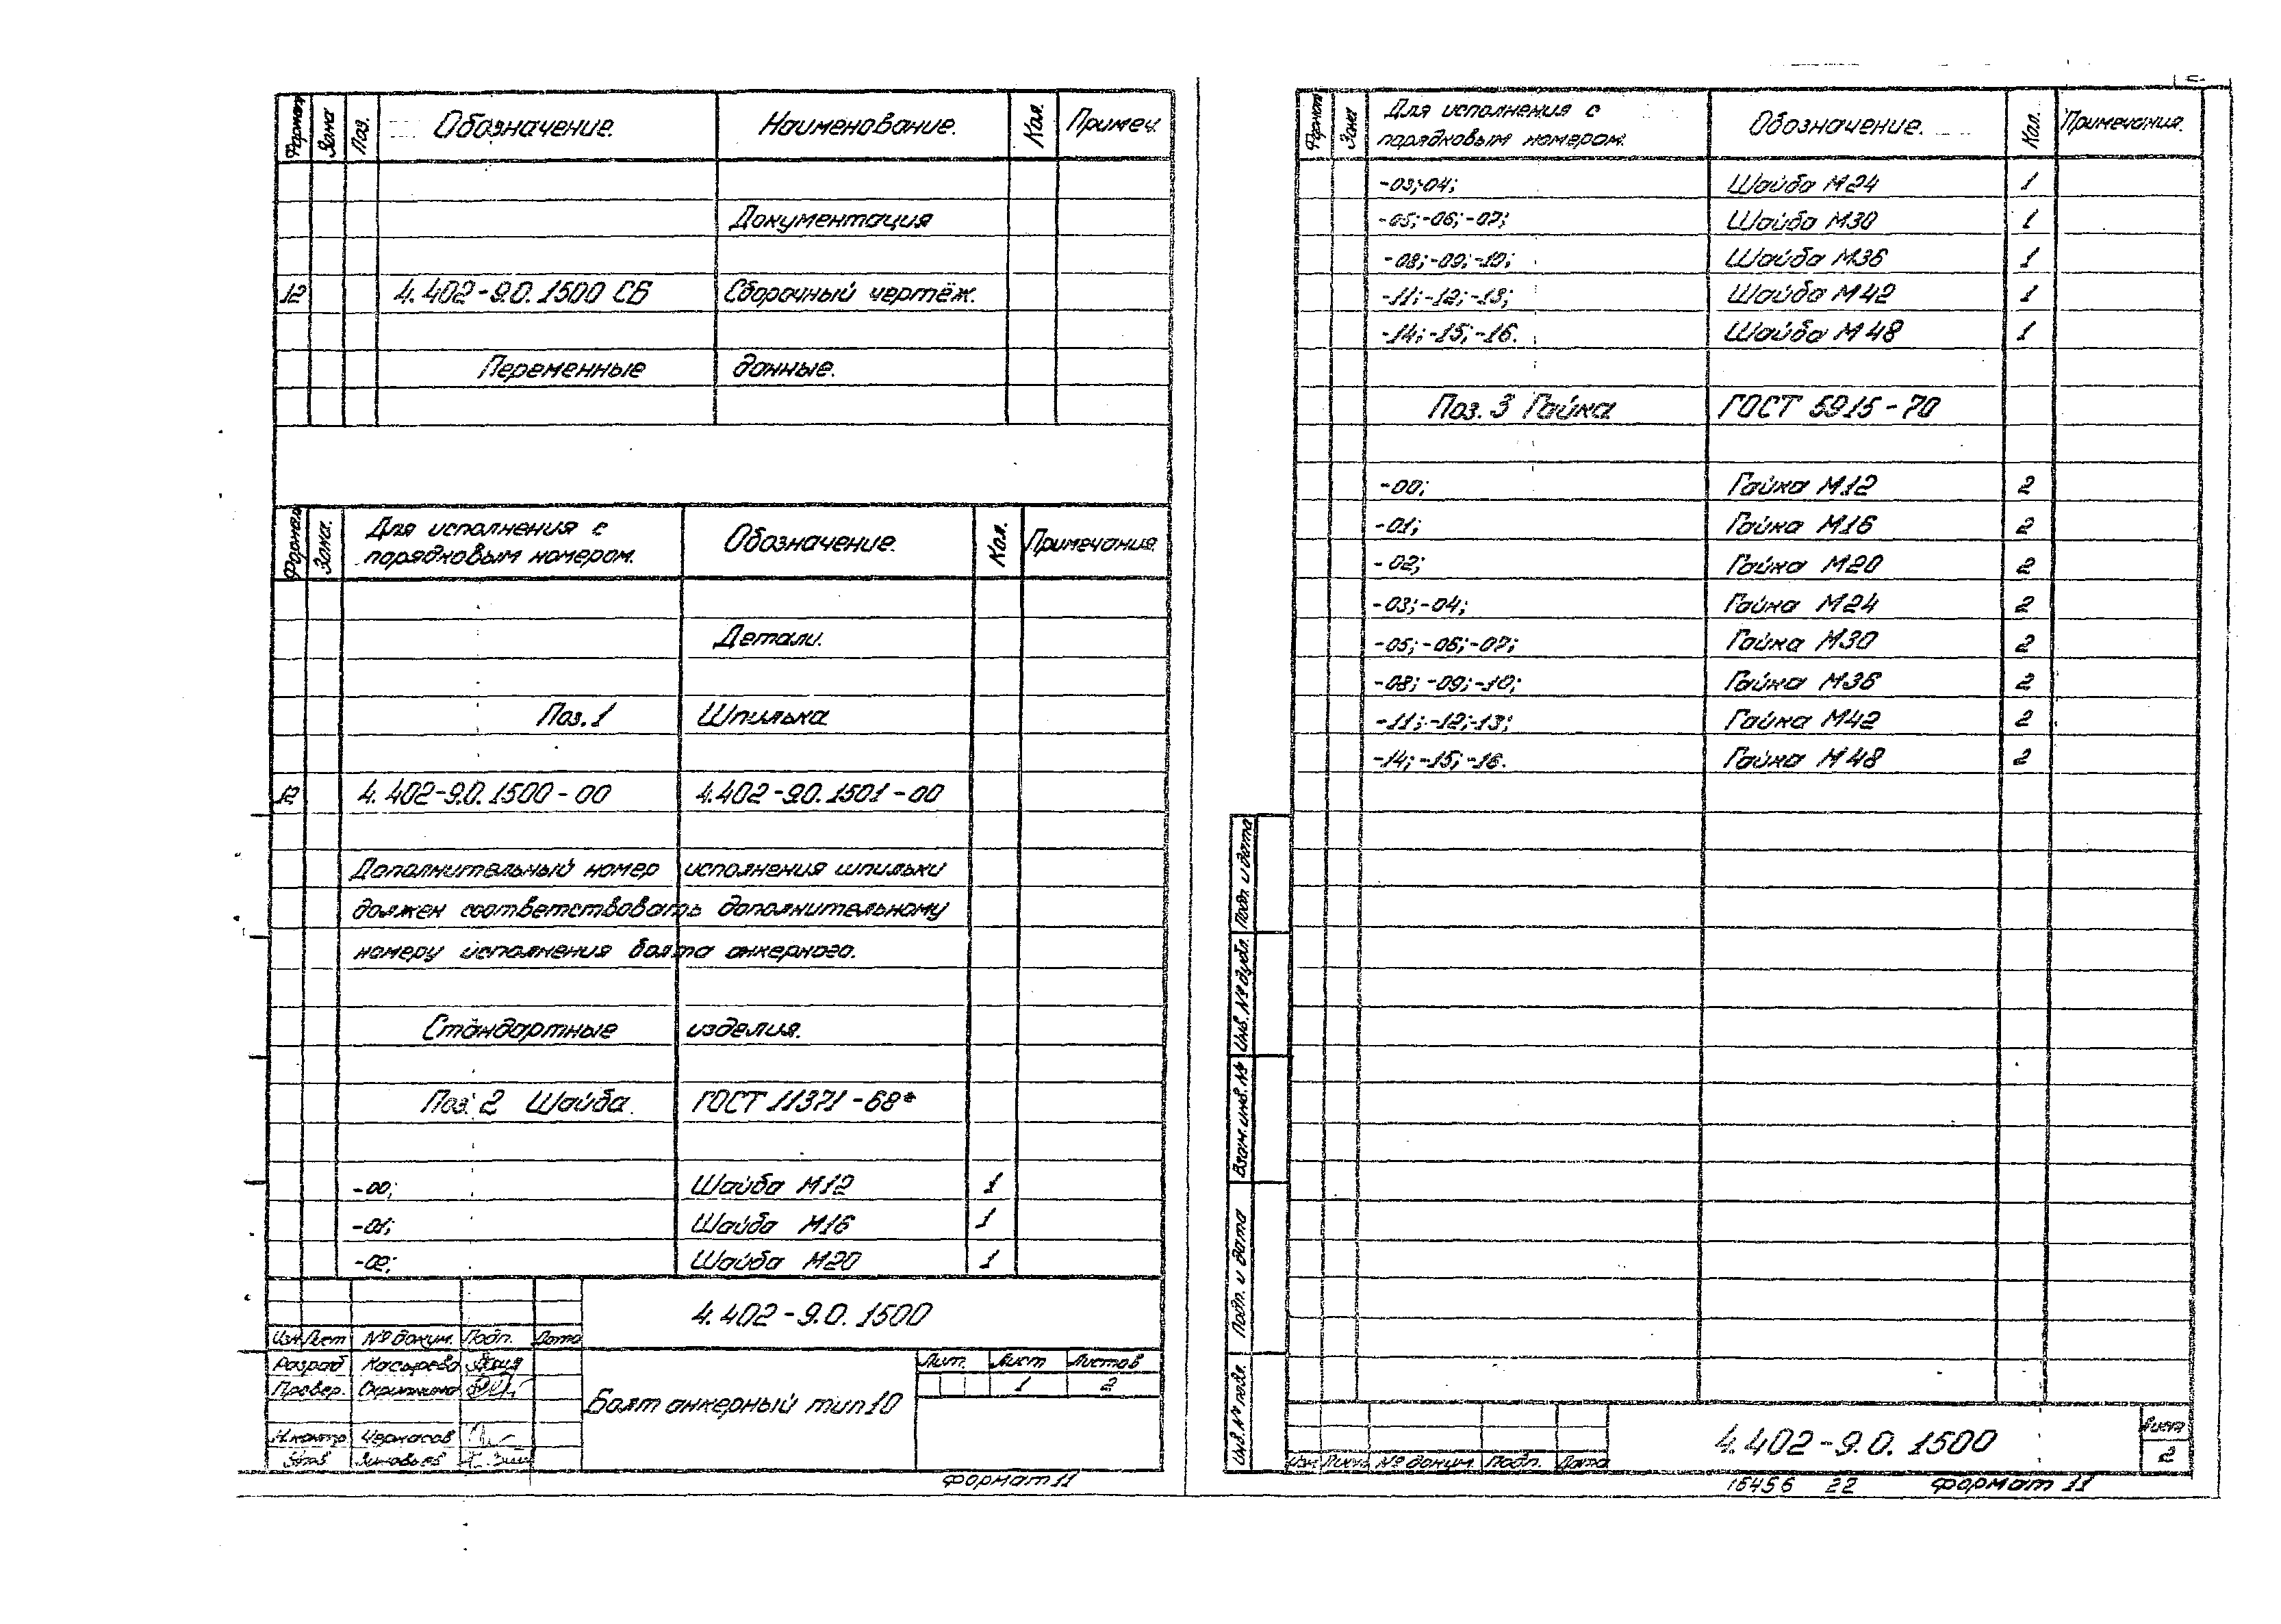 Формат Зона Поз. Обозначение. Наименование. Кол. Примеч.
Документация
12 4.402-9.0.1500 СБ Сборочный чертёж.
Переменные данные.
Формат Зона. Для исполнения с порядковым номером. Обозначение. Кол. Примечания.
Детали.
Поз. 1 Шпилька
12 4.402-9.0.1500-00 4.402-9.0.1501-00
Дополнительный номер исполнения шпильки
должен соответствовать дополнительному
номеру исполнения болта анкерного.
Стандартные изделия.
Поз. 2 Шайба. ГОСТ 11371-68*
-00; Шайба М12 1
-01; Шайба М16 1
-02; Шайба М20 1
4.402-9.0.1500
Изм. Лист № докум. Подп. Дата
Разраб Касырева
Провер.
Н.контр Черкасов
Утв Зиновьев
Болт анкерный тип 10
Лит. Лист Листов
1 2
Формат 11
Формат Зона Для исполнения с порядковым номером. Обозначение. Кол. Примечания.
-03;-04; Шайба М24 1
-05;-06;-07; Шайба М30 1
-08;-09;-10; Шайба М36 1
-11;-12;-13; Шайба М42 1
-14;-15;-16. Шайба М48 1
Поз. 3 Гайка ГОСТ 5915-70
-00; Гайка М12 2
-01; Гайка М16 2
-02; Гайка М20 2
-03;-04; Гайка М24 2
-05;-06;-07; Гайка М30 2
-08;-09;-10; Гайка М36 2
-11;-12;-13; Гайка М42 2
-14;-15;-16. Гайка М48 2
Подп. и дата
Инв. № дубл.
Взам. инв. №
Подп. и дата
Инв. № подл.
Изм Лист № докум. Подп. Дата
4.402-9.0.1500
Лист
2
16456 22 Формат 11